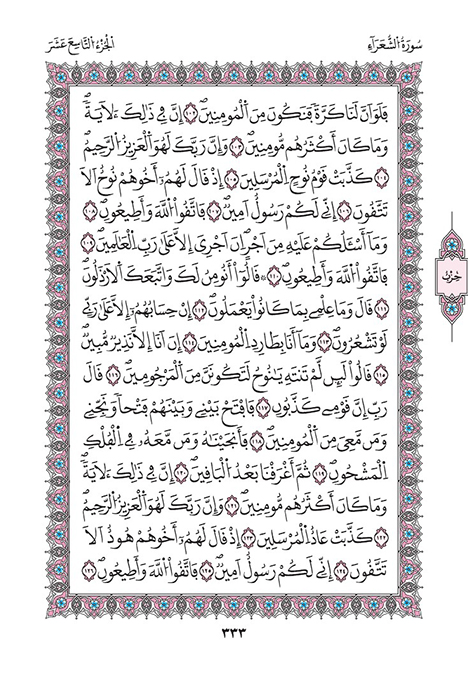 سُورَةُ الشُّعَرَاءِ
الجُزْءُ التَّاسِعَ عَشَرَ
فَلَوْ أَنَّ لَنَا كَرَّةً فَنَكُونَ مِنَ الْمُؤْمِنِينَ ۝١٠٢ إِنَّ فِي ذَٰلِكَ لَآيَةً ۖ
وَمَا كَانَ أَكْثَرُهُم مُّؤْمِنِينَ ۝١٠٣ وَإِنَّ رَبَّكَ لَهُوَ الْعَزِيزُ الرَّحِيمُ
۝١٠٤ كَذَّبَتْ قَوْمُ نُوحٍ الْمُرْسَلِينَ ۝١٠٥ إِذْ قَالَ لَهُمْ أَخُوهُمْ نُوحٌ أَلَا
تَتَّقُونَ ۝١٠٦ إِنِّي لَكُمْ رَسُولٌ أَمِينٌ ۝١٠٧ فَاتَّقُوا اللَّهَ وَأَطِيعُونِ ۝١٠٨
وَمَا أَسْأَلُكُمْ عَلَيْهِ مِنْ أَجْرٍ ۖ إِنْ أَجْرِيَ إِلَّا عَلَىٰ رَبِّ الْعَالَمِينَ ۝١٠٩
فَاتَّقُوا اللَّهَ وَأَطِيعُونِ ۝١١٠ قَالُوا أَنُؤْمِنُ لَكَ وَاتَّبَعَكَ الْأَرْذَلُونَ
۝١١١ قَالَ وَمَا عِلْمِي بِمَا كَانُوا يَعْمَلُونَ ۝١١٢ إِنْ حِسَابُهُمْ إِلَّا عَلَىٰ رَبِّي ۖ
لَوْ تَشْعُرُونَ ۝١١٣ وَمَا أَنَا بِطَارِدِ الْمُؤْمِنِينَ ۝١١٤ إِنْ أَنَا إِلَّا نَذِيرٌ مُّبِينٌ
۝١١٥ قَالُوا لَئِن لَّمْ تَنتَهِ يَا نُوحُ لَتَكُونَنَّ مِنَ الْمَرْجُومِينَ ۝١١٦ قَالَ
رَبِّ إِنَّ قَوْمِي كَذَّبُونِ ۝١١٧ فَافْتَحْ بَيْنِي وَبَيْنَهُمْ فَتْحًا وَنَجِّنِي
وَمَن مَّعِيَ مِنَ الْمُؤْمِنِينَ ۝١١٨ فَأَنجَيْنَاهُ وَمَن مَّعَهُ فِي الْفُلْكِ
الْمَشْحُونِ ۝١١٩ ثُمَّ أَغْرَقْنَا بَعْدُ الْبَاقِينَ ۝١٢٠ إِنَّ فِي ذَٰلِكَ لَآيَةً ۖ
وَمَا كَانَ أَكْثَرُهُم مُّؤْمِنِينَ ۝١٢١ وَإِنَّ رَبَّكَ لَهُوَ الْعَزِيزُ الرَّحِيمُ
۝١٢٢ كَذَّبَتْ عَادٌ الْمُرْسَلِينَ ۝١٢٣ إِذْ قَالَ لَهُمْ أَخُوهُمْ هُودٌ أَلَا
تَتَّقُونَ ۝١٢٤ إِنِّي لَكُمْ رَسُولٌ أَمِينٌ ۝١٢٥ فَاتَّقُوا اللَّهَ وَأَطِيعُونِ ۝١٢٦
حِزْبٌ
٣٣٣